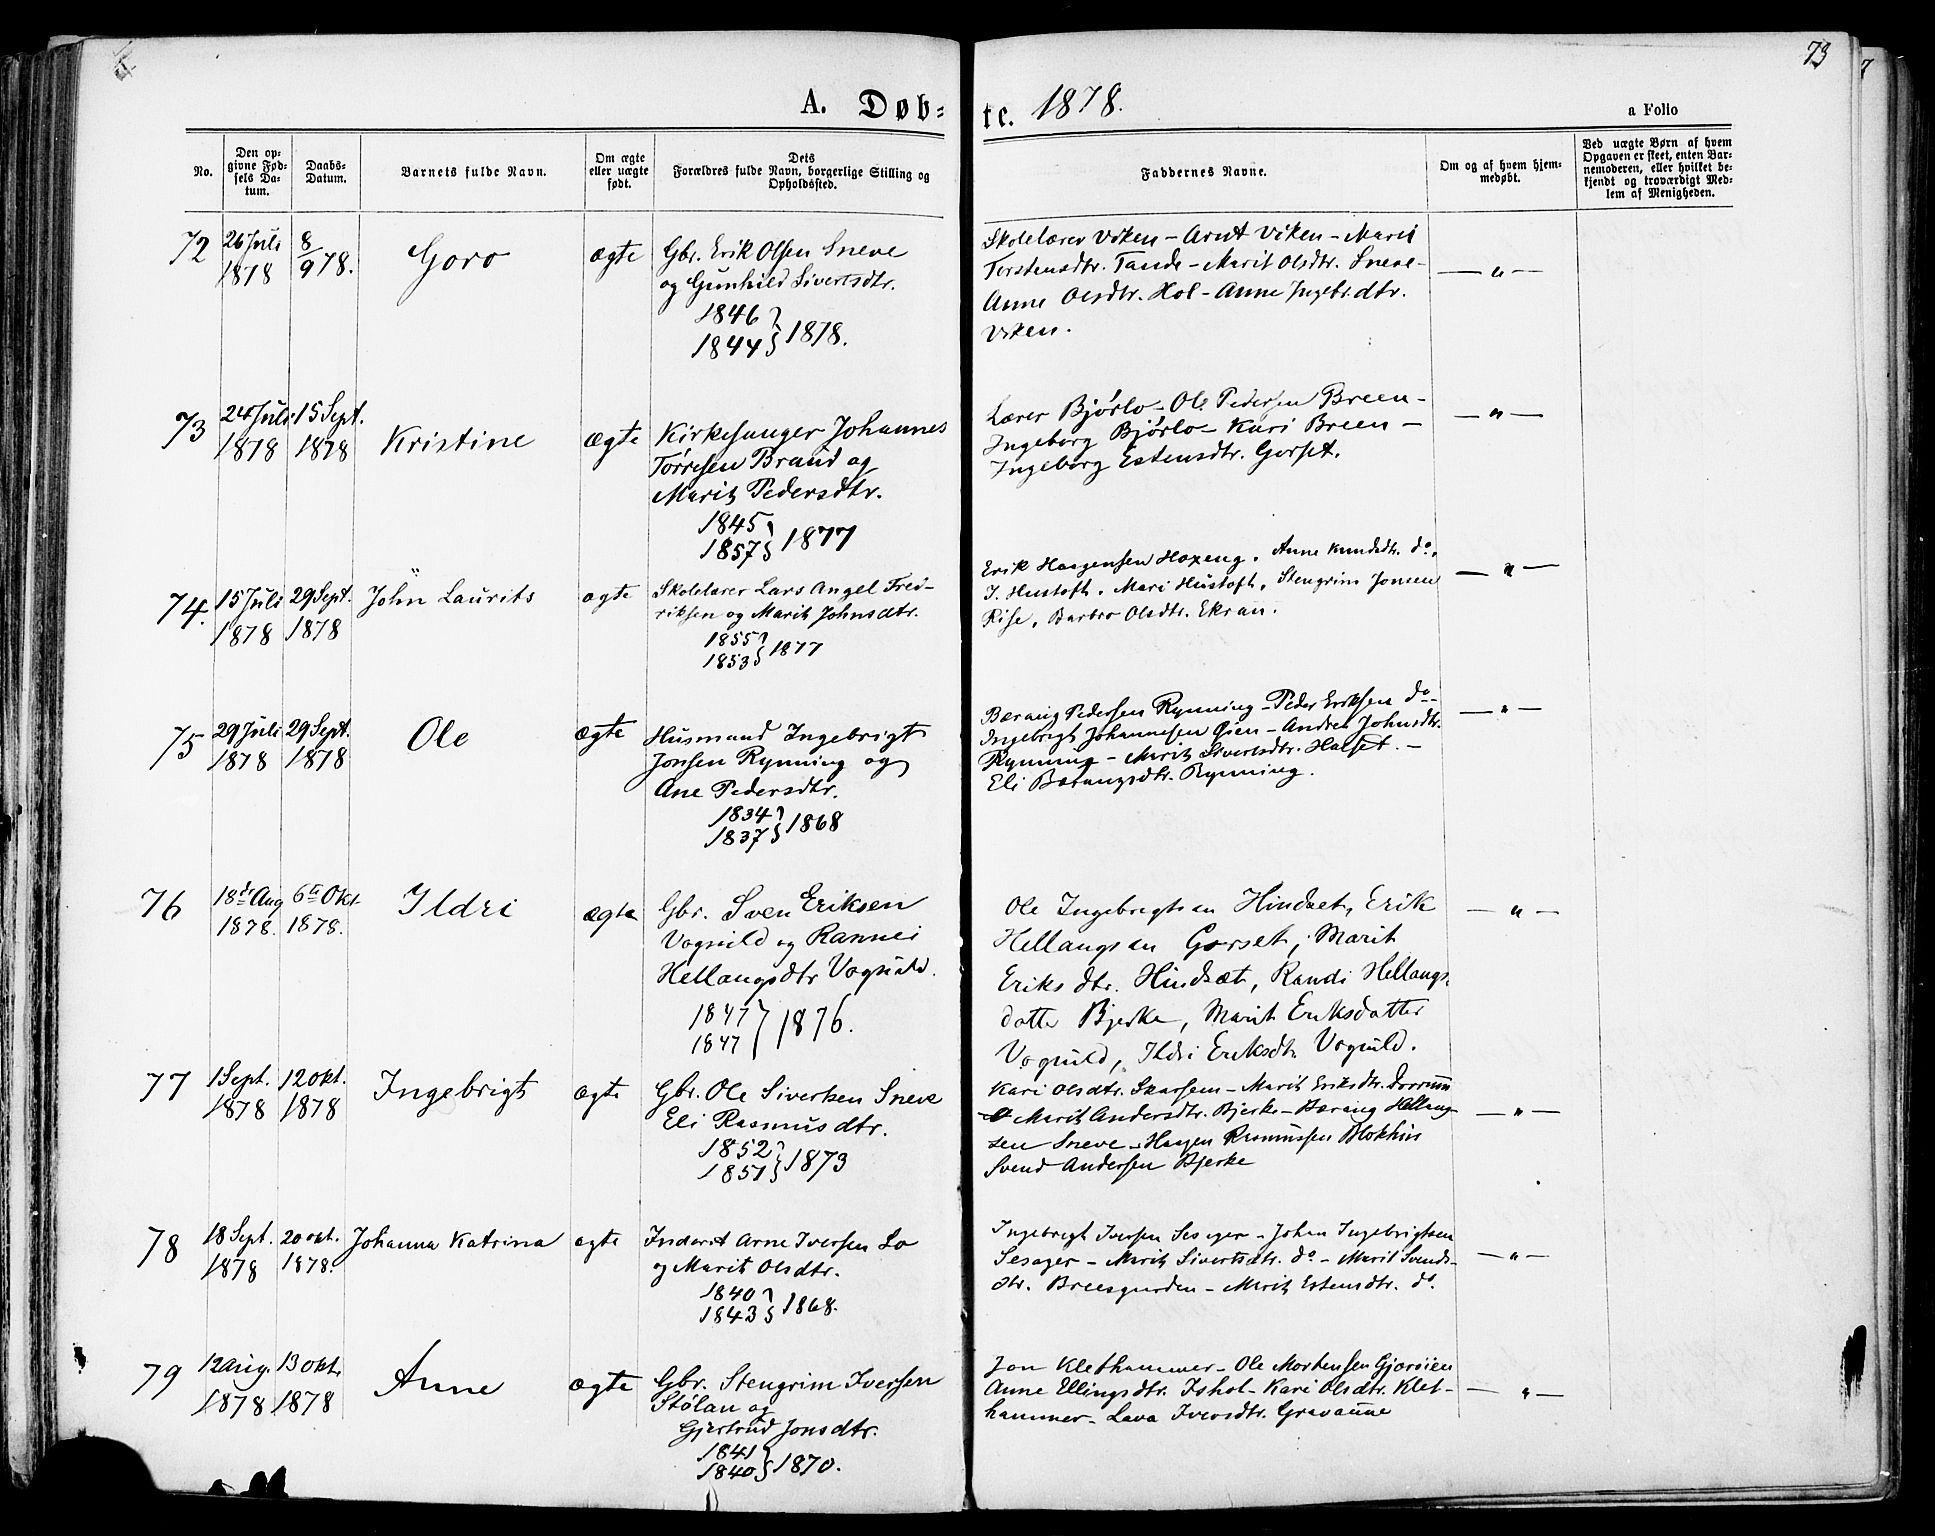 73
A. Døb= te. 1878.
a Folio
No.
Den op-
givne Fød-
sels Da-
tum.
Daabs-
Datum.
Barnets fulde Navn.
Om ægte
eller uægte
født.
Dets
Forældres fulde Navn, borgerlige Stilling og
Opholdssted.
Faddernes Navne.
Om og af hvem hjem-
medøbt.
Ved uægte Børn af hvem
Opgaven er skeet, enten Bar-
nemoderen, eller hvilket be-
kjendt og troværdigt Med-
lem af Menigheden.
72
26 Juli
1878
8/9 78.
Goro
ægte
Gbr. Erik Olsen Sneve
og Gunhild Sivertsdtr.
1846
1844 } 1878.
Skolelærer Viken - Arnt Viken - Marit
Torstensdtr. Tande - Marit Olsdtr. Sneve -
Anne Olsdtr. Hol - Anne Ingebr.dtr.
Viken.
— " —
73
24 Juli
1878
15 Sept.
1878
Kristine
ægte
Kirkesanger Johannes
Tørresen Brand og
Marit Pedersdtr.
1845
1857 } 1877
Lærer Bjørlo - Ole Pedersen Breen -
Ingeborg Bjørlo - Kari Breen -
Ingeborg Estensdtr. Gorset.
— " —
74.
15 Juli
1878
29 Sept.
1878
John Laurits
ægte
Skolelærer Lars Angel Fred-
riksen og Marit Johnsdtr.
1855
1853 } 1877
Erik Haagensen Hoxeng. Anne Knudsdtr. do.
J. Hustoft. Mari Hustoft. Stengrim Jonsen
Rise, Barbro Olsdtr. Ekran.
— " —
75
29 Juli
1878
29 Sept.
1878
Ole
ægte
Husmand Ingebrigt
Jonsen Rynning og
Ane Pedersdtr.
1834
1837 } 1868
Bærang Pedersen Rynning - Peder Eriksen do -
Ingebrigt Johannesen Øien - Andrea Johnsdtr.
Rynning - Marit Sivertsdtr. Halset. -
Eli Bærangsdtr. Rynning.
— " —
76
18de Aug
1878.
6te Okt
1878.
Ildri
ægte
Gbr. Sven Eriksen
Vognild og Rannei
Hellangsdtr Vognild.
1847
1847 } 1876.
Ole Ingebrigtsen Hindset, Erik
Hellangsen Gorset, Marit
Eriksdtr. Hindsæt, Randi Hellangs-
datter Bjerke, Marit Eriksdatter
Vognild, Ildri Eriksdtr. Vognild.
— " —
77
1 Sept.
1878
12 Okt.
1878
Ingebrigt
ægte
Gbr. Ole Sivertsen Sneve
Eli Rasmusdtr.
1852
1851 } 1873
Kari Olsdtr. Skarsem - Marit Eriksdtr.
Marit Andersdtr. Bjerke - Bærang Hellang-
sen Sneve - Haagen Rasmussen Blokhus
Svend Andersen Bjerke
— " —
78
18 Sept.
1878
20 okt.
1878.
Johanna Katrina
ægte
Inderst Arne Iversen Lo
og Marit Olsdtr.
1840
1843 } 1868.
Ingebrigt Iversen Sesager - John Ingebrigtsen
Sesager - Marit Sivertsdtr. do - Marit Svends-
dtr. Breesgarden - Marit Estensdtr. do.
— " —
79
12 Aug.
1878
13 okt.
1878
Anne
ægte
Gbr. Stengrim Iversen
Stølan og
Gjertrud Jonsdtr.
1841
1840 } 1870.
Jon Klethammer - Ole Mortensen Gjørøien
Anne Ellingsdtr. Ishol - Kari Olsdtr. Klet-
hammer - Lava Iversdtr. Gravaune
— " —